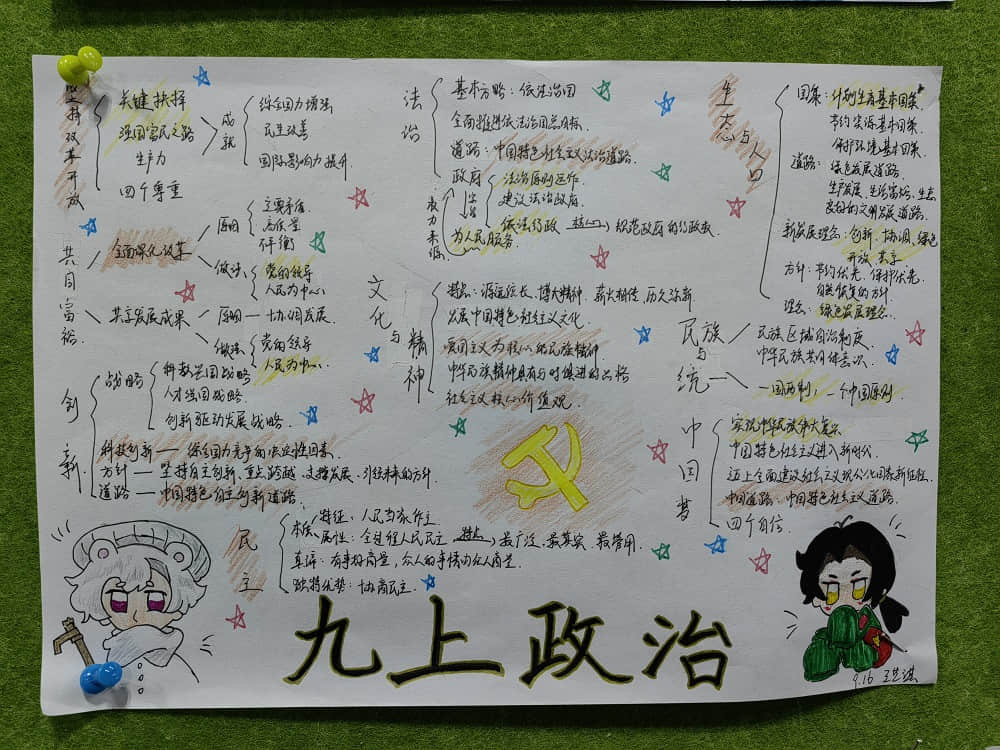 坚持改革开放
关键抉择
强国富民之路
生产力
四个尊重
成就
综合国力增强
民生改善
国际影响力提升
共同富裕
全面深化改革
原因
主要矛盾
高质量
不平衡
做法
党的领导
人民为中心
共享发展成果
原因 — 协调发展
做法
党的领导
人民为中心
创新
战略
科教兴国战略
人才强国战略
创新驱动发展战略
科技创新 — 综合国力竞争的决定性因素
方针 — 坚持自主创新、重点跨越、支撑发展、引领未来的方针
道路 — 中国特色自主创新道路
法治
基本方略：依法治国
全面推进依法治国总目标
道路：中国特色社会主义法治道路
政府
法治原则运作
建设法治政府
依法行政 核心 规范政府的行政权
权力来源
宗旨
为人民服务
文化与精神
特点：源远流长、博大精神、薪火相传、历久弥新
发展中国特色社会主义文化
爱国主义为核心的民族精神
中华民族精神具有与时俱进的品格
社会主义核心价值观
民主
特征：人民当家作主
本质属性：全过程人民民主 特点 最广泛、最真实、最管用
真谛：有事好商量，众人的事情由众人商量
独特优势：协商民主
生态与人口
国策：计划生育基本国策
节约资源基本国策
保护环境基本国策
道路：绿色发展道路
生产发展、生活富裕、生态
良好的文明发展道路
新发展理念：创新、协调、绿色
开放、共享
方针：节约优先、保护优先
自然恢复的方针
理念：绿色发展理念
民族与统一
民族区域自治制度
中华民族共同体意识
一国两制，一个中国原则
中国梦
实现中华民族伟大复兴
中国特色社会主义进入新时代
迈上全面建设社会主义现代化国家新征程
中国道路：中国特色社会主义道路
四个自信
九上政治
9.16